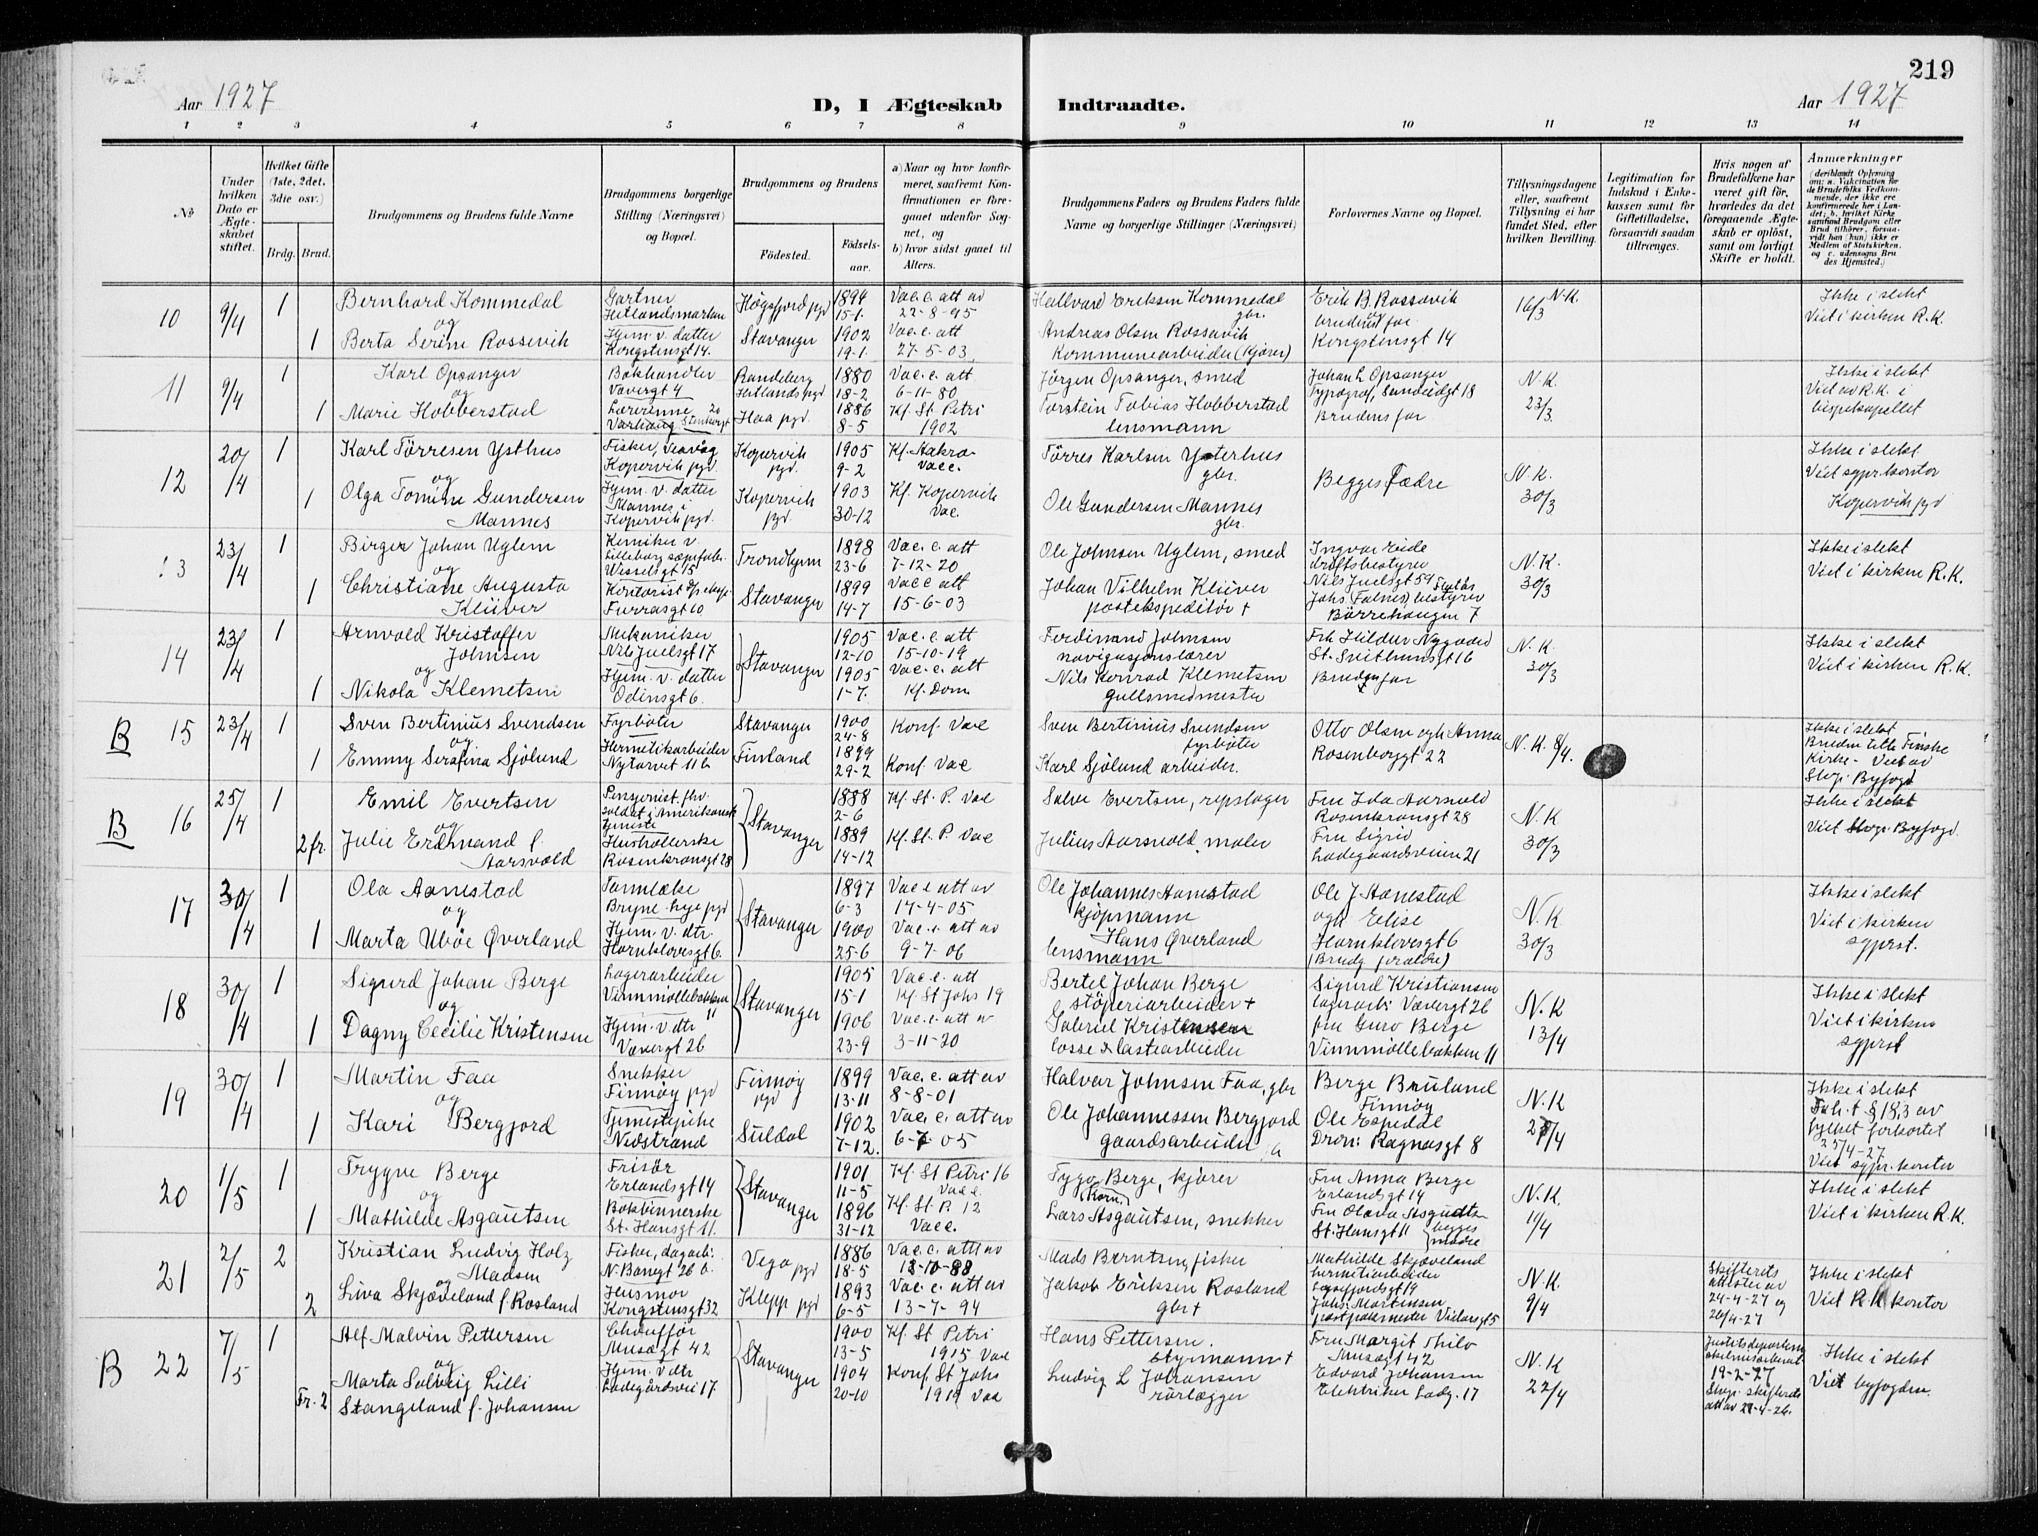 219
Aar 1927
D, I Ægteskab Indtraadte.
Aar 1927
1 2 3 4 5 6 7 8 9 10 11 12 13 14
No
Under hvilken Dato er Ægteskabet stiftet.
Hvilket Gifte (1ste, 2det, 3die osv.)
Brdg. Brud.
Brudgommens og Brudens fulde Navne
Brudgommens borgerlige Stilling (Næringsvei) og Bopæl.
Brudgommens og Brudens
Fødested.
Fødsels-aar.
a) Naar og hvor konfirmeret, saafremt Konfirmationen er foregaaet udenfor Sognet, og
b) hvor sidst gaaet til Alters.
Brudgommens Faders og Brudens Faders fulde Navne og borgerlige Stillinger (Næringsvei)
Forlovernes Navne og Bopæl.
Tillysningsdagene eller, saafremt Tillysning ei har fundet Sted, efter hvilken Bevilling.
Legitimation for Indskud i Enkekassen samt for Giftetilladelse, forsaavidt saadan tiltrænges.
Hvis nogen af Brudefolkene har været gift før, hvorledes da det foregaaende Ægteskab er opløst, samt om lovligt Skifte er holdt.
Anmærkninger
(deriblandt Oplysning om: a. Vakcination for de Brudefolks Vedkommende, der ikke ere konfirmerede her i Landet; b. hvilket Kirkesamfund Brudgom eller Brud tilhører, forsaavidt han (hun) ikke er Medlem af Statskirken, og c. udensogns Brudes Hjemsted.)
10 9/4 1 Bernhard Kommedal Gartner Hetlandsmarken Høgsfjord pgd 1894 15-1. Vac. e. att av 22-8-95 Hallvard Eriksen Kommedal gbr. Erik B. Rossavik 16/3 N.K. Ikke i slekt
og brudens far Viet i kirken R.K.
1 Berta Serine Rossevik Hjem. v. datter Kongstensgt 14. Stavanger 1902 19-1. Vac. e. att 27-5-03 Andreas Olsen Rossavik Kommunearbeider (kjører) Kongstensgt 14
11 9/4 1 Karl Opsanger Bokhandler Vævergt 4 Randeberg Hetlands pgd 1880 18-2 Vac. e. att 6-11-80 Jörgen Opsanger, smed Johan L Opsanger Typograf, Sandeidgt 18 N.K. 23/3 Ikke i slekt
og Viet av R.K. i bispekapellet
1 Marie Hobberstad Lærerinne Varhaug Haa pgd. 1886 8-5 Kf. St Petri 1902 Torstein Tobias Hobberstad lensmann Brudens far
12 20/4 1 Karl Törresen Ysthus Fisker, Veavåg Kopervik pgd. Kopervik pgd. 1905 9-2 Kf. Aakra Vacc. Törres Karlsen Ysterhus gbr. Begges Fædre N.K. 30/3 Ikke i slekt
og Viet sypr. kontor
1 Olga Tomine Gundersen Mannes Hjem. v. datter Mannes i Kopervik pgd. Kopervik pgd. 1903 30-12 Kf. Kopervik Vac. Ole Gundersen Mannes gbr. Kopervik pgd
13 23/4 1 Birger Johan Uglem Kemiker v. Lilleborg sæpefab. Wesselsgt 15 Trondhjem 1898 23-6 Vac. e. att 7-12-20 Ole Johnsen Uglem, smed Ingvar Eide driftsbestyrer Nils Juelsgt 54 N.K. 30/3 Ikke i slekt
og Viet i kirken R.K.
1 Christiane Augusta Klüver Kontorist Furrasgt 60 Stavanger 1899 14-7 Vac e att 15-6-03 Johan Vilhelm Klüver postekspeditör + Johs Falnes, bestyrer Börrehaugen 7
14 23/4 1 Arnvald Kristoffer Johnsen Mekaniker Nils Juelsgt 17 Stavanger 1905 12-10 Vac. e. att 15-10-19 Ferdinand Johnsen navigasjonslærer Frk Hildur Nygaard St. Svithunsgt 16 N.K. 30/3 Ikke i slekt
og Viet i kirken R.K.
1 Nikola Klemetsen Hjem. v. datter Odinsgt 6. 1905 1-7. Vac. e. att Kf. Dom Nils Konrad Klemetsen gullsmedmester Brudens far
B 15 23/4 1 Sven Bertinius Svendsen Fyrböter Stavanger 1900 24-8 Konf. Vac Sven Bertinius Svendsen fyrböter Otto Olsen ogh Anna N.K. 8/4. Ikke i slekt
og Bruden tilh. Finske
1 Emmy Serafina Sjölund Hermetikarbeider Nytorvet 11b Finland 1899 29-2 Konf. Vac Karl Sjölund arbeider. Rosenborggt 22 Kirke - Viet av Stvgr. Byfogd
B 16 25/4 1 Emil Evertsen Pensjonist. fhv. soldat i Amerikansk tjeneste Stavanger 1888 2-6 Kf. St. P. Vac Salve Evertsen, repslager Fru Ida Aarsvold Rosenkransgt 28 N.K 30/3 Ikke i slekt
og Viet Stvgr. Byfogd.
2 fr. Julie Erdmand f. Aarsvold Husholderske Rosenkransgt 28 1889 14-12 Kf. St. P. Vac Julius Aarsvold, maler Fru Sigrid Ladegaardsveien 21
17 30/4 1 Ola Aanestad Tannlæke Bryne, Lye pgd Stavanger 1897 6-3 Vac e att av 17-4-05 Ole Johannes Aanestad kjöpmann Ole J Aanestad N.K 30/3 Ikke i slekt
og ogh Elise Viet i kirken
1 Marta Uböe Øverland Hjem v. dtr. Harnklovesgt 6. 1900 25-6 Vac. e att av 9-7-06 Hans Øverland lensmann Harnklovesgt 6 (Brudg forældre) sypr st.
18 30/4 1 Sigurd Johan Berge Lagerarbeider Vinnmöllebakken 11 Stavanger 1905 15-1 Vac. e. att Kf. St Johs 19 Bertel Johan Berge stöperiarbeider + Sigurd Kristiansen lagerarb. Vævergt 26 N.K 13/4 Ikke i slekt
og Viet i kirken
1 Dagny Cecilie Kristensen Hjem. v dtr Vævergt 26 1906 23-9 Vac. e. att av 3-11-20 Gabriel Kristensen losse & lastearbeider fru Guro Berge Vinnmöllebakken 11 sypr st
19 30/4 1 Martin Faa Snekker Finnöy pgd Finnöy pgd 1899 13-11 Vac. e. att av 8-8-01 Halvar Johnsen Faa, gbr Berge Bruland Finnöy N.K 27/4 Ikke i slekt
og § 18,3 av
1 Kari Bergjord Tjenestepike Nedstrand Suldal 1902 7-12. Vac. e. att av 6-7-05 Ole Johannessen Bergjord gaardsarbeider Ole Espedal Dron: Ragnasgt 8 Fylket forkortet 25/4-27 Viet sypr. kontor
20 1/5 1 Trygve Berge Frisör Erlandsgt 14 Stavanger 1901 11-5 Kf. St Petri 16 Vacc. Tygo Berge, kjörer Fru Anna Berge Erlandsgt 14 N.K. 11/4 Ikke i slekt
og Viet i kirken R.K.
1 Mathilde Asgautsen Bokbinnerske St. Hansgt 11. 1896 31-12 Kf. St P. 12 Vacc. Lars (Korn.) Asgautsen, snekker Fru Olava Asgautsen St. Hansgt 11 begges mödre
21 2/5 2 Kristian Ludvig Holz Madsen Fisker, dagarb: N. Banegt 26 b. Vega pgd 1886 18-5 Vac. e. att av 13-10-88 Mads Berntsen, fisker Mathilde Skjæveland hermetikarbeider N.K 9/4 Skifterets attester av 24-4-27 og 26/4-27 Ikke i slekt
og Viet R.K kontor
2 Lina Skjæveland f. Rosland Husmor Kongstensgt 32 Klepp pgd 1893 6-5 Vac. e. att av 13-7-94 Jakob Eriksen Rosland gbr + Johs Martinsen Vidarsgt 5
B 22 7/5 1 Alf Malvin Pettersen Chaufför Musægt 42 Stavanger 1900 13-5 Kf. St Petri 1915 Vac Hans Pettersen. Styrmann + Fru Margit Thilo Musægt 42 N.K 22/4 Justitsdepartem. 19-2-27 Stvgr. skifterets att av 21-4-26. Ikke i slekt
og Viet byfogden.
Fr. 2 Marta Solveig Lilli Stangeland f. Johansen Hjem. v dtr Ladegårdsvei 17. 1904 20-10 Konf. St Johs 1919 Vac Ludvig L Johansen rörlægger Edvard Johansen Elektriker Ladg. 17